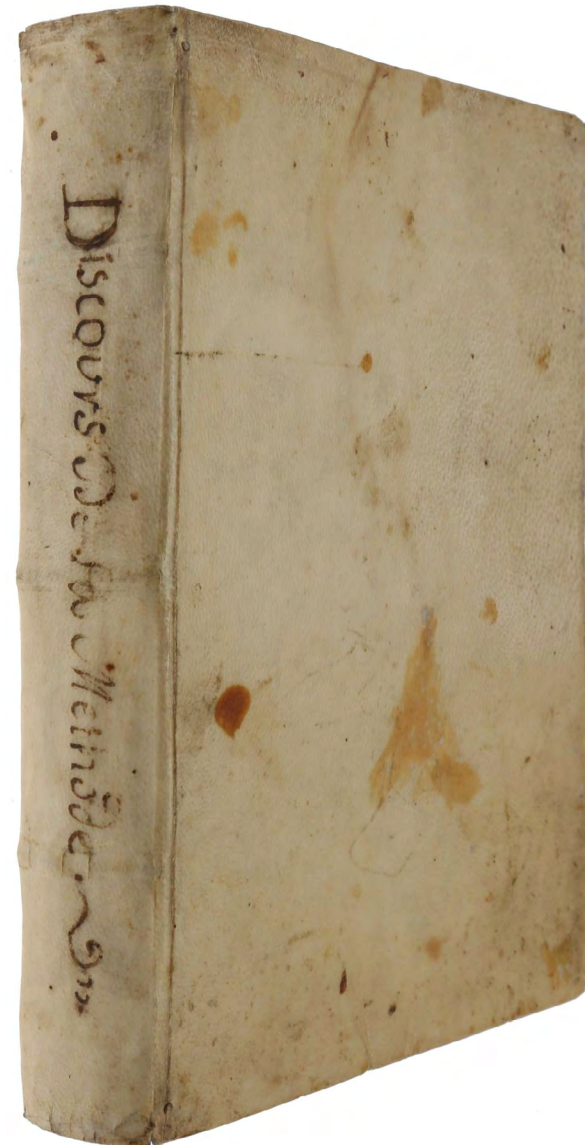 Discours De la Methode.